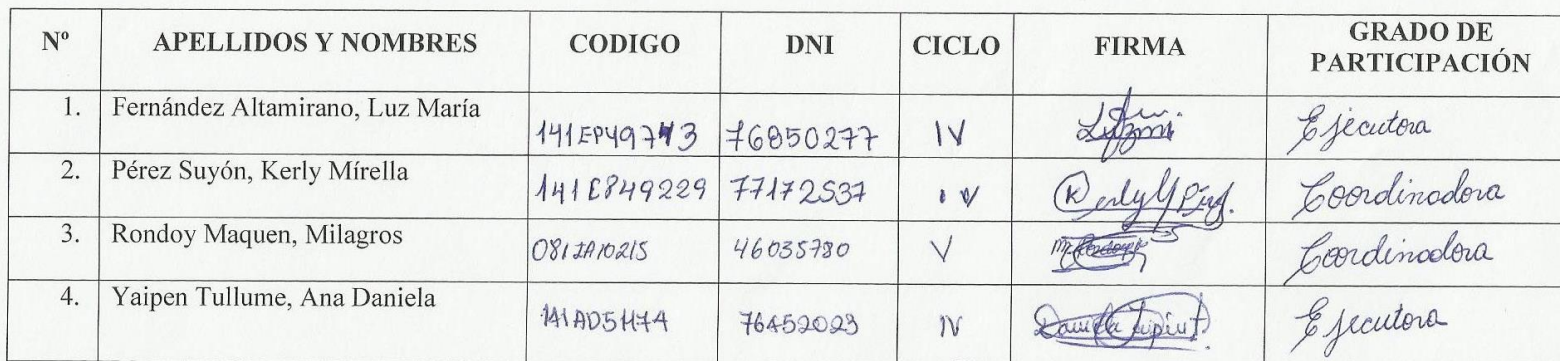 Nº APELLIDOS Y NOMBRES CODIGO DNI CICLO FIRMA GRADO DE PARTICIPACIÓN
1. Fernández Altamirano, Luz María 141EP49743 76850277 IV Ejecutora
2. Pérez Suyón, Kerly Mírella 141E849229 77172537 IV Coordinadora
3. Rondoy Maquen, Milagros 081JA10215 46035780 V Coordinadora
4. Yaipen Tullume, Ana Daniela 141AD51174 76452023 IV Daniela Ejecutora